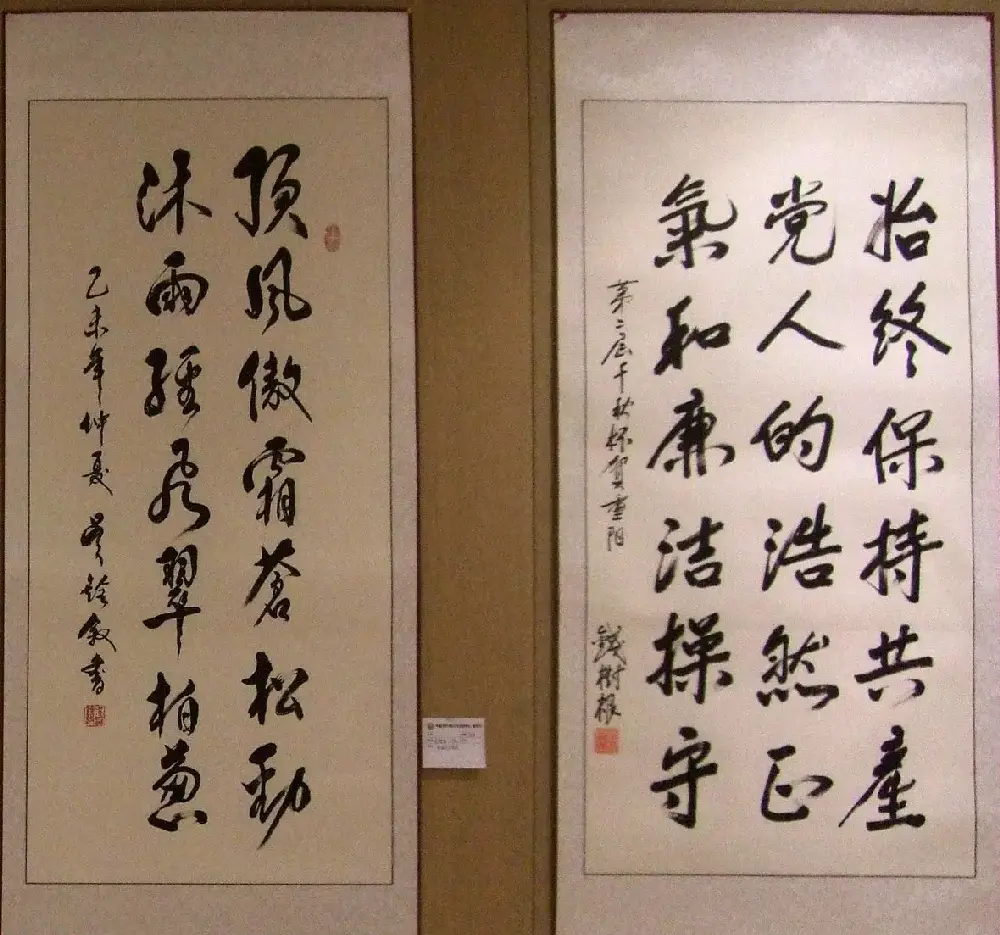 抬终保持共產
党人的浩然正
氣和廉洁操守
第二届千秋杯賀重阳
錢树根
顶风傲霜苍松劲
沐雨經飛翠柏葱
乙未年仲夏 铃叙書